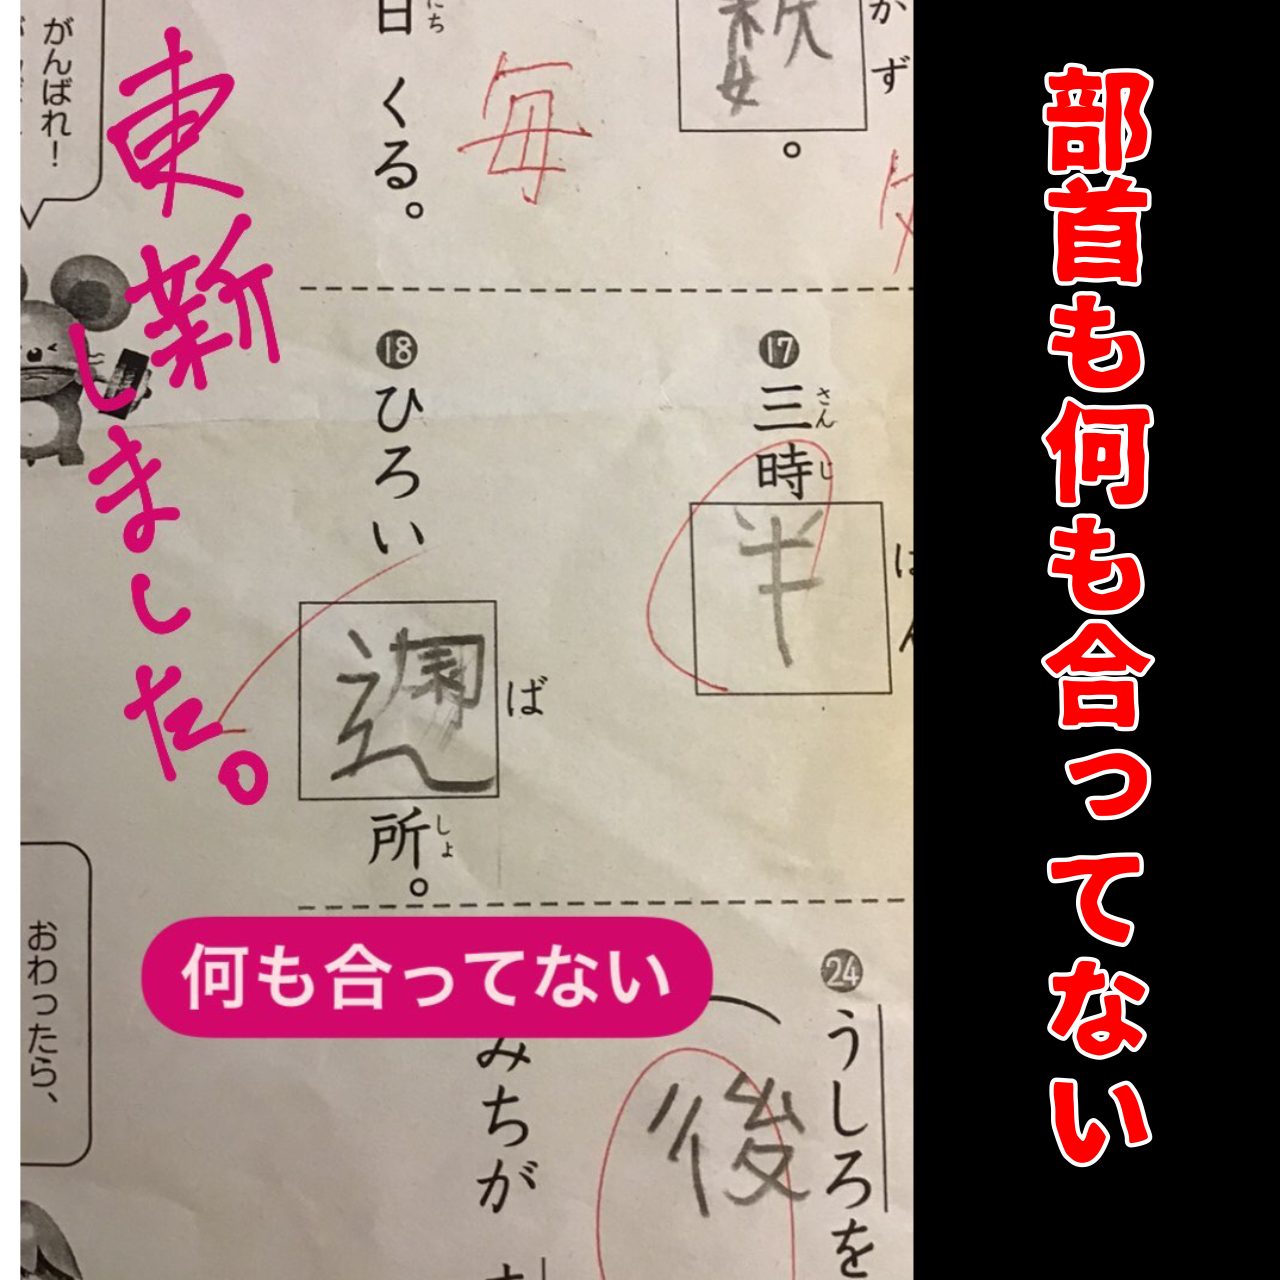 部首も何も合ってない
かず
。
日くる。
にち
毎
がんばれ!
東新
しました。
⓱三時半
さんじ
はん
⓲ひろい週所。
ば
しょ
何も合ってない
㉔うしろを
後
みちが
おわったら、